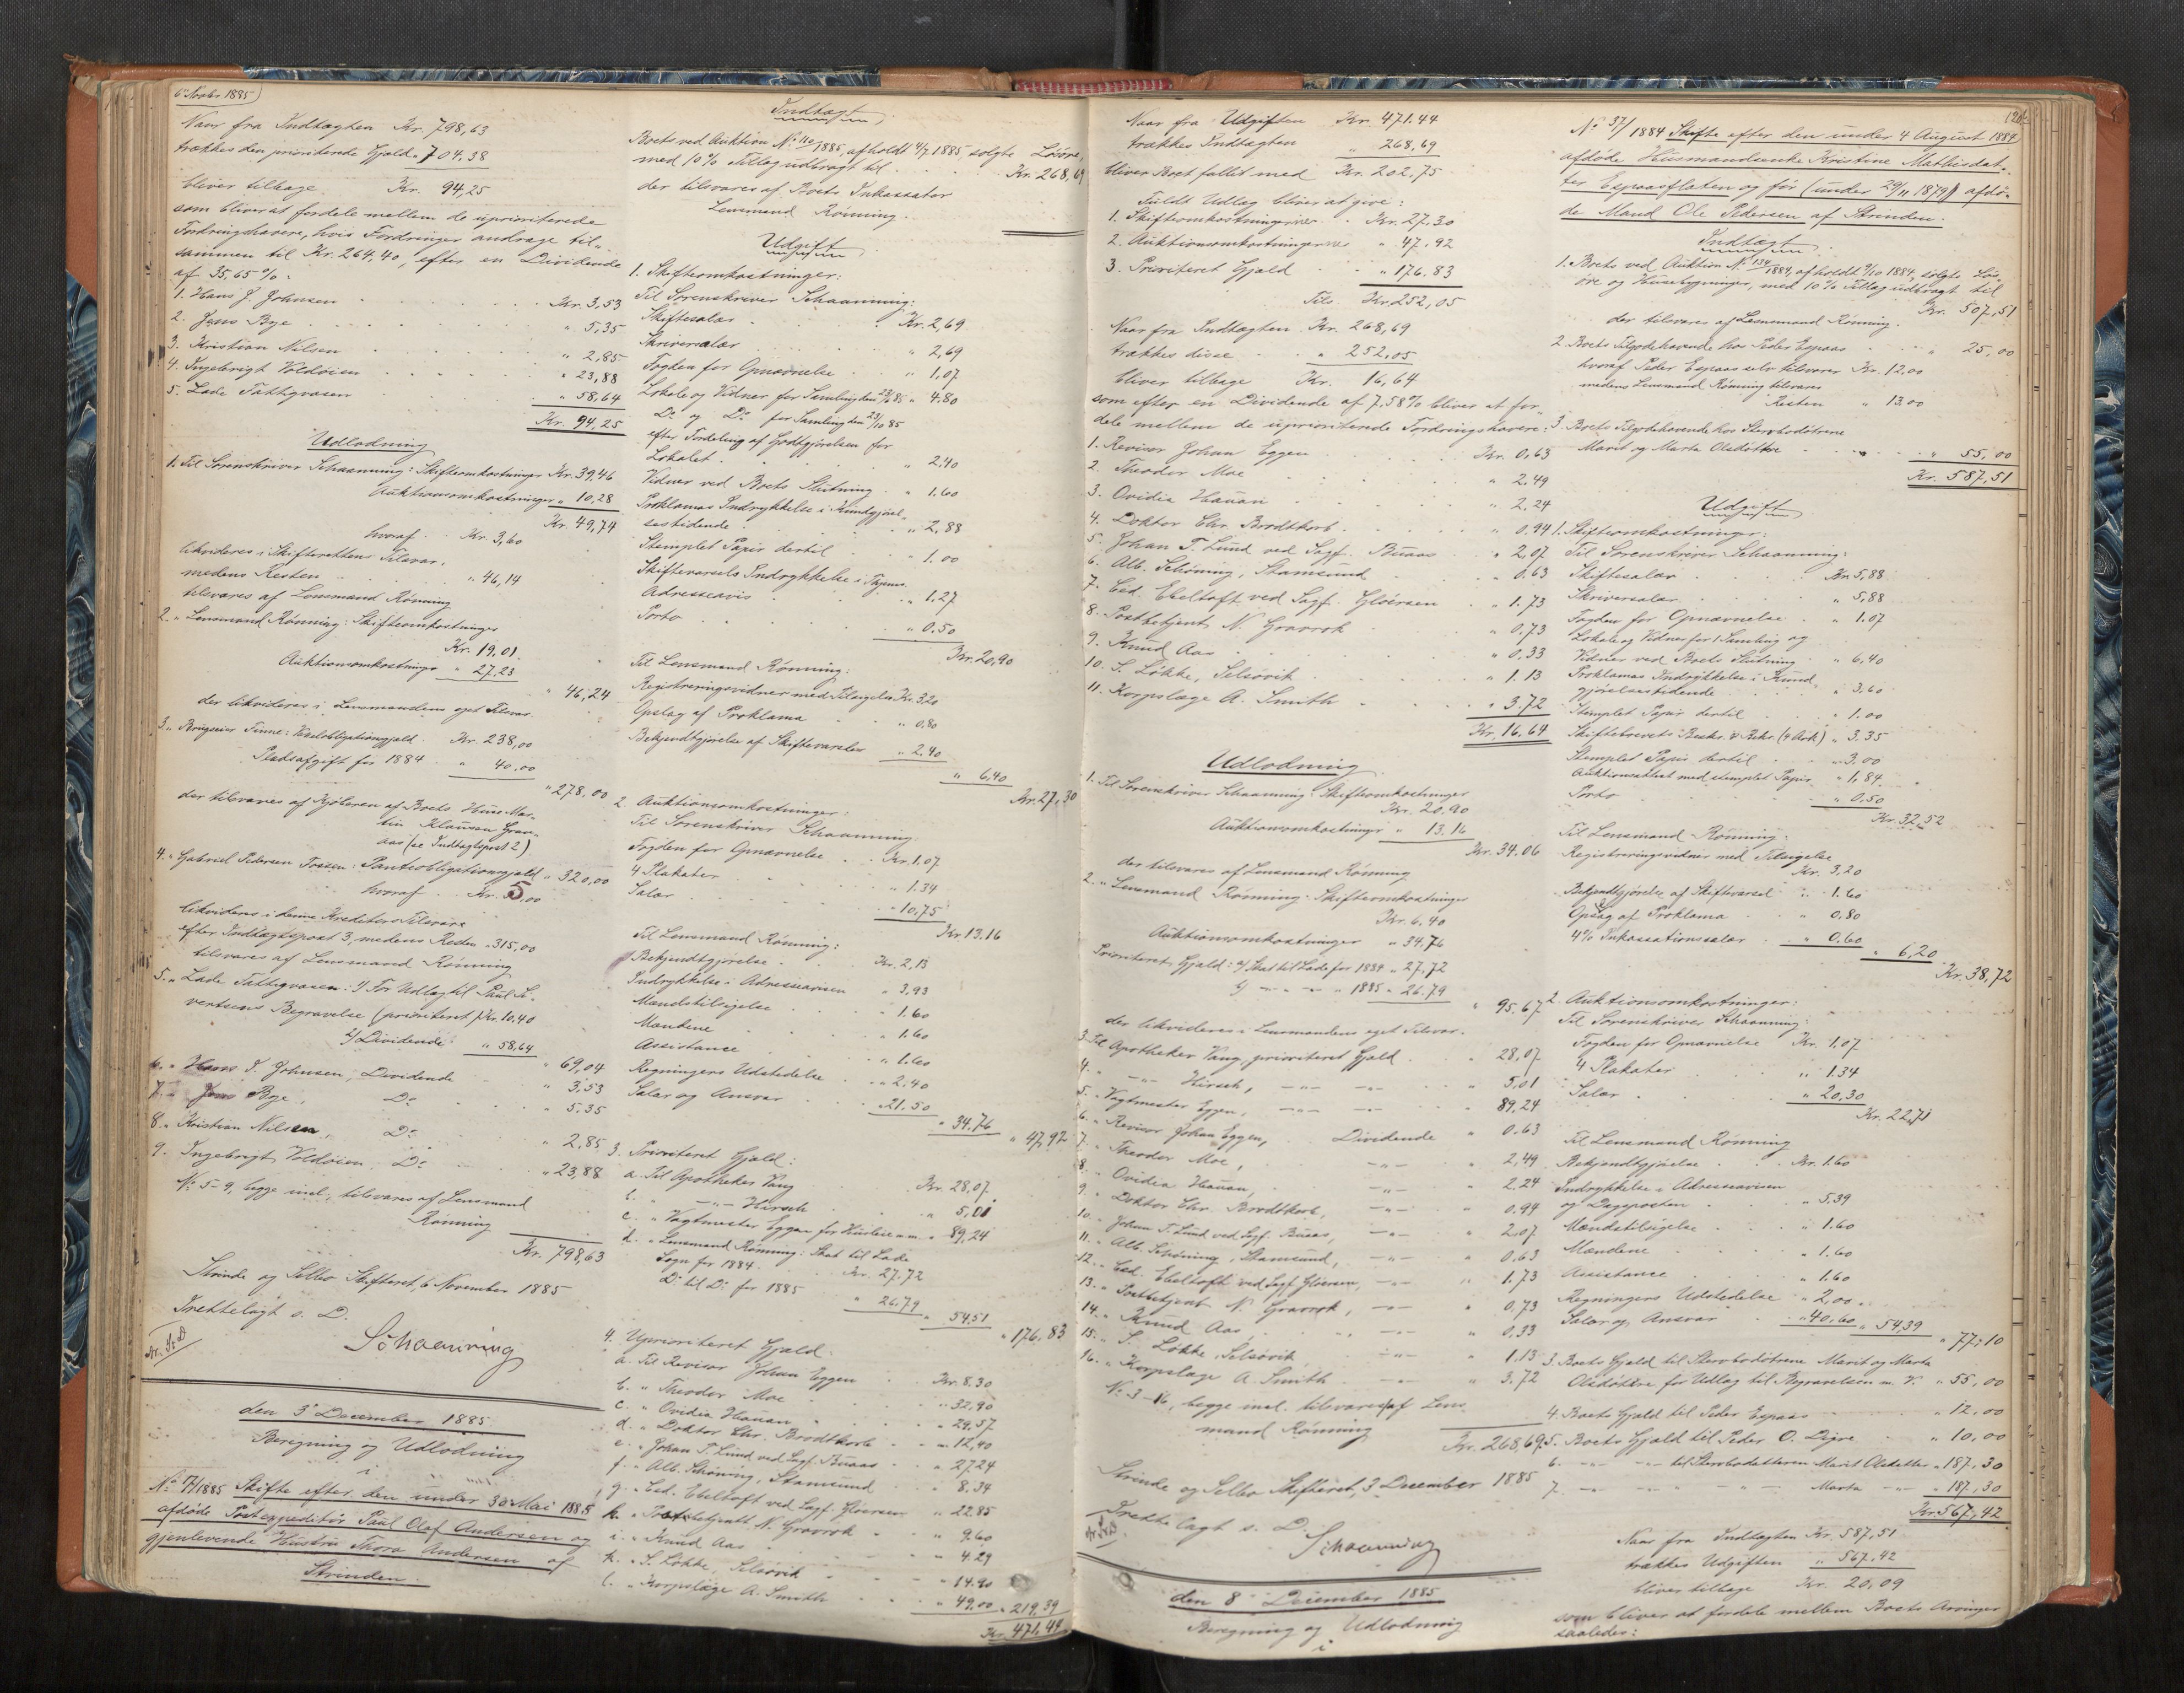 6 Novbr 1885
Naar fra Indtægten Kr. 798,63
trækkes den prioriterede Gjeld " 704.38
bliver tilbage Kr. 94,25
som bliver at fordele mellem de uprioriterede
Fordringshavere, hvis Fordringer andrage til-
sammen til Kr. 264,40, efter en Dividende
af 35,65 %:
1. Hans J. Johnsen Kr. 3,53
2. Jens Bye " 5,35
3. Kristian Nilsen " 2,85
4. Ingebrigt Voldøien " 23,88
5. Lade Fattigvæsen " 58,64
Kr. 94,25
Udlodning
1. Til Sorenskriver Schaanning: Skifteomkostninger Kr. 39,46
Auktionsomkostninger " 10,28
Kr. 49,74
hvoraf Kr. 3,60
likvideres i Skifterettens Tilsvar,
medens Resten " 46,14
tilsvares af Lensmand Rønning
2. " Lensmand Rønning: Skifteomkostninger
Kr. 19,01
Auktionsomkostninger " 27,23
" 46,24
der likvideres i Lensmandens eget Tilsvar.
3. " Brugseier Finne: obligationsgjæld Kr. 238,00
Pladsafgift for 1884 " 40,00
" 278,00
der tilsvares af Kjøberen af Boets Huus Mar-
tin Klausen Gran-
aas (se Indtægtspost 2)
4. " Gabriel Pedersen : Panteobligationsgjæld " 320,00
hvoraf Kr. 5,00
likvideres i denne Kreditors Tilsvar
efter Indtægtspost 3, medens Resten " 315,00
tilsvares af Lensmand Rønning
5. " Lade Fattigvæsen: 1/ For Udlæg til Paul Si-
vertsens Begravelse (prioriteret) Kr. 10.40
2/ Dividende " 58,64
" 69,04
6. " Hans J. Johnsen, Dividende " 3,53
7. " Jens Bye, Do " 5,35
8. " Kristian Nilsen, Do " 2,85
9. Ingebrigt Voldøien, Do " 23,88
No 5-9, begge incl., tilsvares af Lensmand
Rønning
Kr. 798,63
Strinde og Selbo Skifteret, 6 November 1885
Irettelagt s. D.
Schaanning
den 3 December 1885
Beregning og Udlodning
i
No 17/1885 Skifte efter den under 30 Mai 1885
afdøde Postexpeditør Paul Olaf Andersen og
gjenlevende Hustru Thora Andersen af
Strinden.
Indtægt
Boets ved Auktion No 110/1885, afholdt 4/7 1885, solgte Løsøre,
med 10 % Tillæg udbragt til Kr. 268,69
der tilsvares af Boets Inkassator
Lensmand Rønning.
Udgift
1. Skifteomkostninger:
Til Sorenskriver Schaanning:
Skiftesalær Kr. 2,69
Skriversalær " 2,69
Fogden for Opnævnelse " 1,07
Lokale og Vidner for Samling den 85 " 4.80
Do og Do for Samling den 23/10 85
efter Fordeling af Godtgjørelsen for
Lokalet " 2,40
Vidner ved Boets Slutning " 1.60
Proklamas Indrykkelse i Kundgjørel-
sestidende " 2,88
Stemplet Papir dertil " 1.00
Skiftevarsels Indrykkelse i Thjems
Adresseavis " 1,27
Porto " 0.50
Kr. 20,90
Til Lensmand Rønning:
Registreringsvidner med Tilsigelse Kr. 3,20
Opslag af Proklama " 0,80
Bekjendtgjørelse af Skiftevarsler " 2.40
" 6,40
Kr. 27,30
2. Auktionsomkostninger:
Til Sorenskriver Schaanning
Fogden for Opnævnelse Kr. 1.07
4 Plakater " 1.34
Salær " 10,75
Kr 13.16
Til Lensmand Rønning:
Bekjendtgjørelse Kr. 2,13
Indrykkelse i Adresseavisen " 3,93
Mændstilsigelse " 1.60
Mændene " 1.60
Assistance " 1.60
Regningers Udstedelse " 2.40
Salær og Ansvar " 21.50
" 34.76
" 47,92
3. Prioriteret Gjæld:
a. Til Apotheker Vang Kr. 28,07
b. " —"— Hirsch " 5,01
c. " Vagtmester Eggen for Husleie m.m. " 89,24
d. " Lensmand Rønning: Skat til Lade
Sogn for 1884 Kr. 27.72
Do til Do for 1885 " 26.79
" 54,51
" 176.83
4. Uprioriteret Gjæld.
a. Til Revisor Johan Eggen Kr. 8.30
b. " Theodor Moe " 32,90
c. " Ovidia Hauan " 29,57
d. " Doktor Chr. Brodtkorb " 12,40
e. " Johan T. Lund ved Sagf. Buaas " 27.24
f. " Alb. Schøning, Stamsund " 8.34
g. " Ed. Ebeltoft ved Sagf. Gløersen " 22.85
h. " Postbetjent N. Gravrok " 9,60
i. " Knud Aas " 4.29
k. " S. Løkke, Selsøvik " 14.90
l. " Korpslæge A. Smith " 49,00
" 219,39
Kr. 471.44
Naar fra Udgiften Kr. 471.44
trækkes Indtægten " 268,69
bliver Boet fallit med Kr. 202,75
Fuldt Udlæg bliver at give:
1. Skifteomkostningerne Kr. 27.30
2. Auktionsomkostningerne " 47.92
3. Prioriteret Gjæld " 176,83
Tils. Kr. 252,05
Naar fra Indtægten Kr. 268,69
trækkes disse " 252,05
bliver tilbage Kr. 16,64
som efter en Dividende af 7,58 % bliver at for-
dele mellem de uprioriterede Fordringshavere:
1. Revisor Johan Eggen Kr. 0,63
2. Theodor Moe " 2.49
3. Ovidia Hauan " 2.24
4. Doktor Chr. Brodtkorb " 0.94
5. Johan T. Lund ved Sagf. Buaas " 2,07
6. Alb. Schøning, Stamsund " 0.63
7. Ed. Ebeltoft ved Sagf. Gløersen " 1.73
8. Postbetjent N. Gravrok " 0,73
9. Knud Aas " 0.33
10. S. Løkke, Selsøvik " 1.13
11. Korpslæge A. Smith " 3.72
Kr. 16.64
Udlodning
1. Til Sorenskriver Schaanning: Skifteomkostninger
Kr. 20,90
Auktionsomkostninger " 13.16
Kr. 34.06
der tilsvares af Lensmand Rønning
2. " Lensmand Rønning: Skifteomkostninger
Kr. 6.40
Auktionsomkostninger " 34.76
Prioriteret Gjæld: a/ Skat til Lade for 1884 " 27,72
b/ —"— —"— 1885 " 26.79
" 95.67
der likvideres i Lensmandens eget Tilsvar.
3. Til Apotheker Vang, prioriteret Gjæld " 28,07
4. " —"— Hirsch, —"— —"— " 5,01
5. " Vagtmester Eggen, —"— —"— " 89,24
6. " Revisor Johan Eggen, Dividende " 0.63
7. " Theodor Moe, —"— " 2,49
8. " Ovidia Hauan, —"— " 2.24
9. " Doktor Chr. Brodtkorb, —"— " 0.94
10. " Johan T. Lund ved Sagf. Buaas, —"— " 2,07
11. " Alb. Schøning, Stamsund, —"— " 0,63
12. " Ed. Ebeltoft ved Sagf. Gløersen, —"— " 1.73
13. " Postbetjent N. Gravrok, —"— " 0,73
14. " Knud Aas, —"— " 0.33
15. " S. Løkke, Selsøvik —"— " 1.13
16. " Korpslæge A. Smith —"— " 3.72
No 3-16, begge incl. tilsvares af Lens-
mand Rønning
Kr. 268,69
Strinde og Selbo Skifteret, 3 December 1885
Irettelagt s. D.
Schaanning
den 8 December 1885
Beregning og Udlodning
i
No 37/1884 Skifte efter den under 4 August 1884
afdøde Husmandsenke Kristine Mathisdat-
ter Espaasflaten og før (under 29/11 1879) afdø-
de Mand Ole Pedersen af Strinden.
Indtægt
1. Boets ved Auktion No 134/1884, afholdt 9/10 1884, solgte Løs-
øre og Husebygninger, med 10 % Tillæg udbragt til
Kr. 507,51
der tilsvares af Lensmand Rønning.
2. Boets Tilgodehavende hos Peder Espaas " 25,00
hvoraf Peder Espaas selv tilsvarer Kr. 12,00
medens Lensmand Rønning tilsvares
Resten " 13.00
3. Boets Tilgodehavende hos Stervbodøtrene
Marit og Marta Olsdøttre " 55,00
Kr. 587,51
Udgift
1. Skifteomkostninger:
Til Sorenskriver Schaanning:
Skiftesalær Kr. 5,88
Skriversalær " 5,88
Fogden for Opnævnelse " 1.07
Lokale og Vidner for 1 Samling og
Vidner ved Boets Slutning " 6,40
Proklamas Indrykkelse i Kund-
gjørelsestidende " 3.60
Stemplet Papir dertil " 1.00
Skiftebrevets Beskr. & Bekr. (4 Ark) " 3.35
Stemplet Papir dertil " 3.00
Auktionsattest med stemplet Papir " 1,84
Porto " 0,50
Kr. 32,52
Til Lensmand Rønning:
Registreringsvidner med Tilsigelse
Kr. 3,20
Bekjendtgjørelse af Skiftevarsel " 1.60
Opslag af Proklama " 0,80
4 % Inkassationssalær " 0,60
" 6,20
Kr. 38,72
2. Auktionsomkostninger:
Til Sorenskriver Schaanning:
Fogden for Opnævnelse Kr. 1,07
4 Plakater " 1.34
Salær " 20,30
Kr. 22,71
Til Lensmand Rønning
Bekjendtgjørelse Kr. 1.60
Indrykkelse i Adresseavisen
og Dagsposten " 5,39
Mændstilsigelse " 1.60
Mændene " 1.60
Assistance " 1.60
Regningers Udstedelse " 2,00
Salær og Ansvar " 40.60
" 54,39
" 77,10
3. Boets Gjæld til Stervbodøtrene Marit og Marta
Olsdøttre for Udlæg til Begravelsen m. V. " 55,00
4. Boets Gjæld til Peder Espaas " 12,00
5. Boets Gjæld til Peder O. Digre " 10,00
6. —"— —"— til Stervbodatteren Marit Olsdatter " 187,30
7. —"— —"— —"— Marta —"— " 187.30
Kr. 567,42
Naar fra Indtægten Kr. 587,51
trækkes Udgiften " 567.42
bliver tilbage Kr. 20,09
som bliver at fordele mellem Boets Arvinger
saaledes: